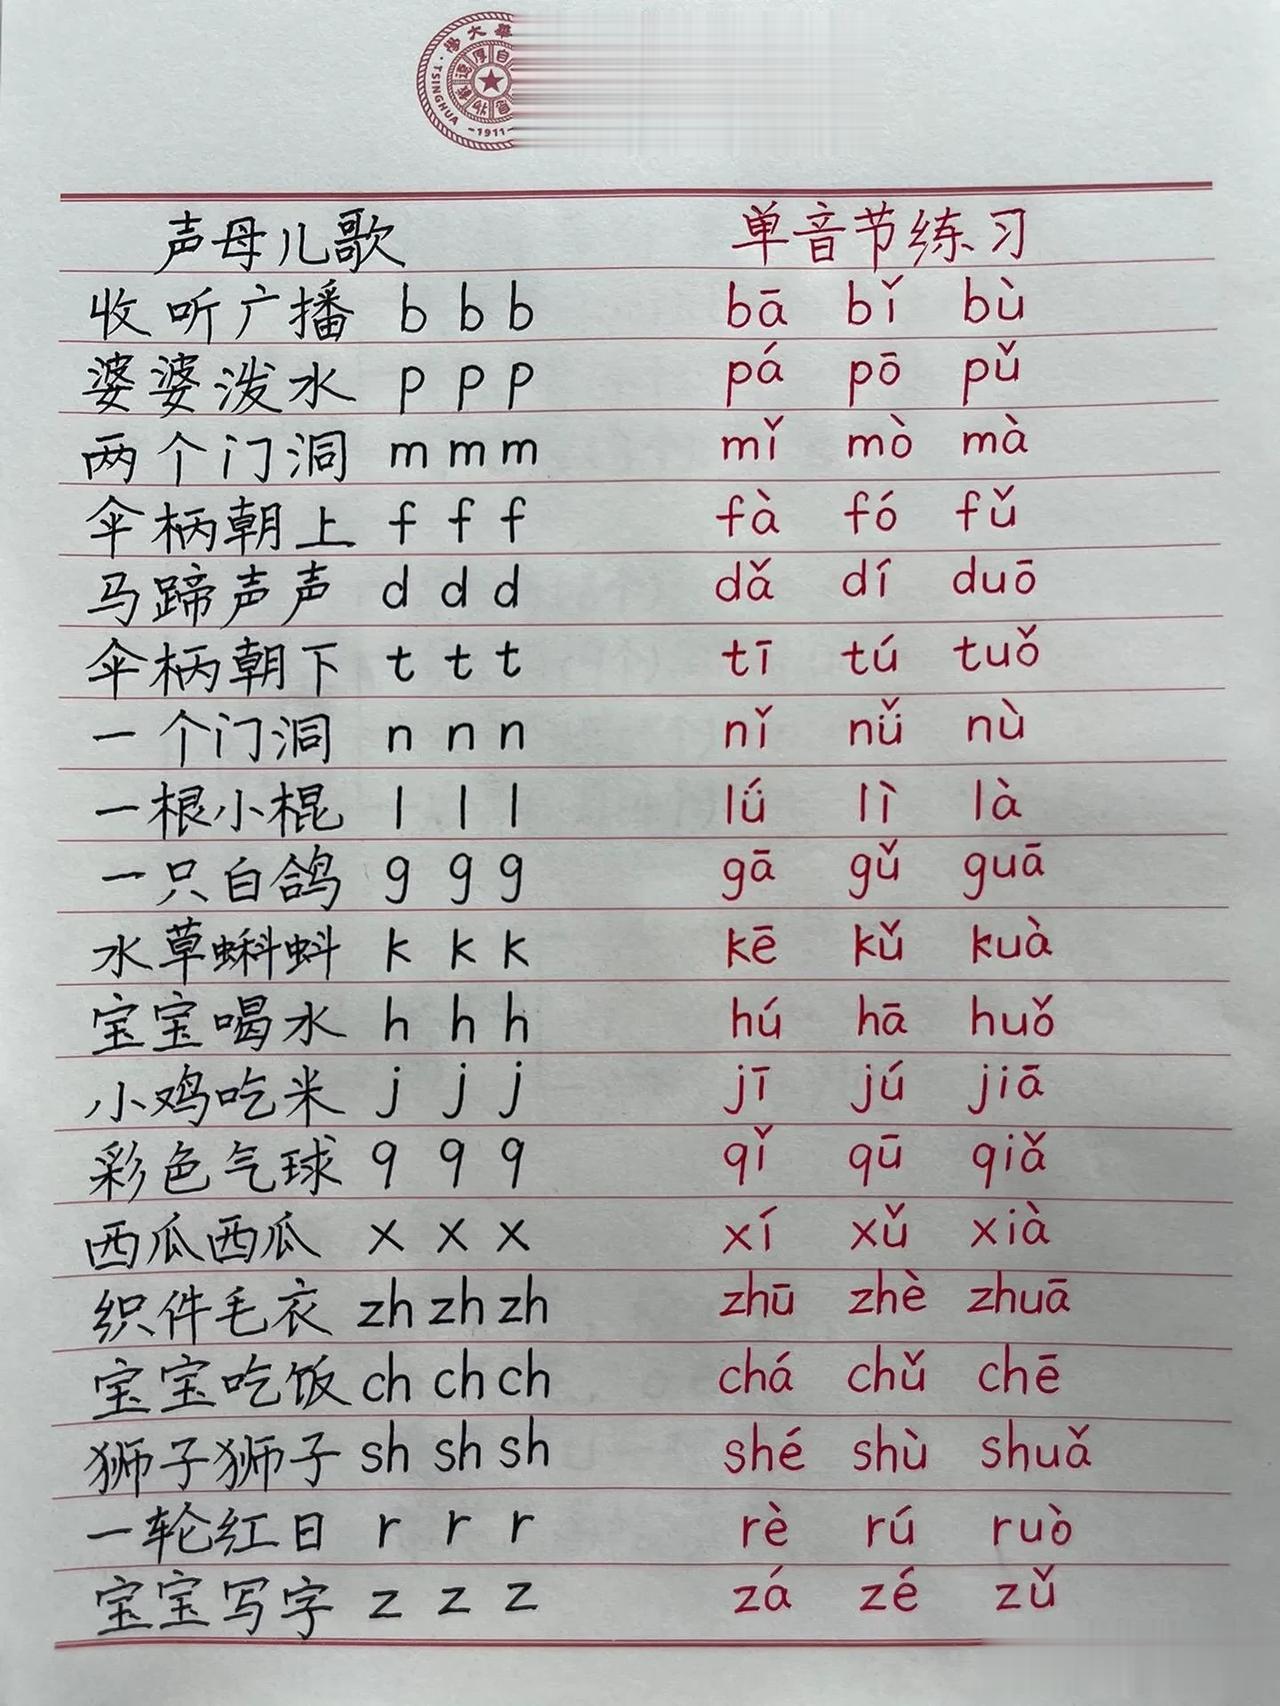 學大華
TSINGHUA
-1911-
声母儿歌 单音节练习
收听广播 b b b bā bǐ bù
婆婆泼水 p p p pá pō pǔ
两个门洞 m m m mǐ mò mà
伞柄朝上 f f f fà fó fǔ
马蹄声声 d d d dǎ dí duō
伞柄朝下 t t t tī tú tuǒ
一个门洞 n n n nǐ nǚ nù
一根小棍 l l l lǘ lì là
一只白鸽 g g g gā gǔ guā
水草蝌蚪 k k k kē kǔ kuà
宝宝喝水 h h h hú hā huǒ
小鸡吃米 j j j jī jú jiā
彩色气球 q q q qǐ qū qiǎ
西瓜西瓜 x x x xí xǔ xià
织件毛衣 zh zh zh zhū zhè zhuā
宝宝吃饭 ch ch ch chá chǔ chē
狮子狮子 sh sh sh shé shù shuǎ
一轮红日 r r r rè rú ruò
宝宝写字 z z z zá zé zǔ